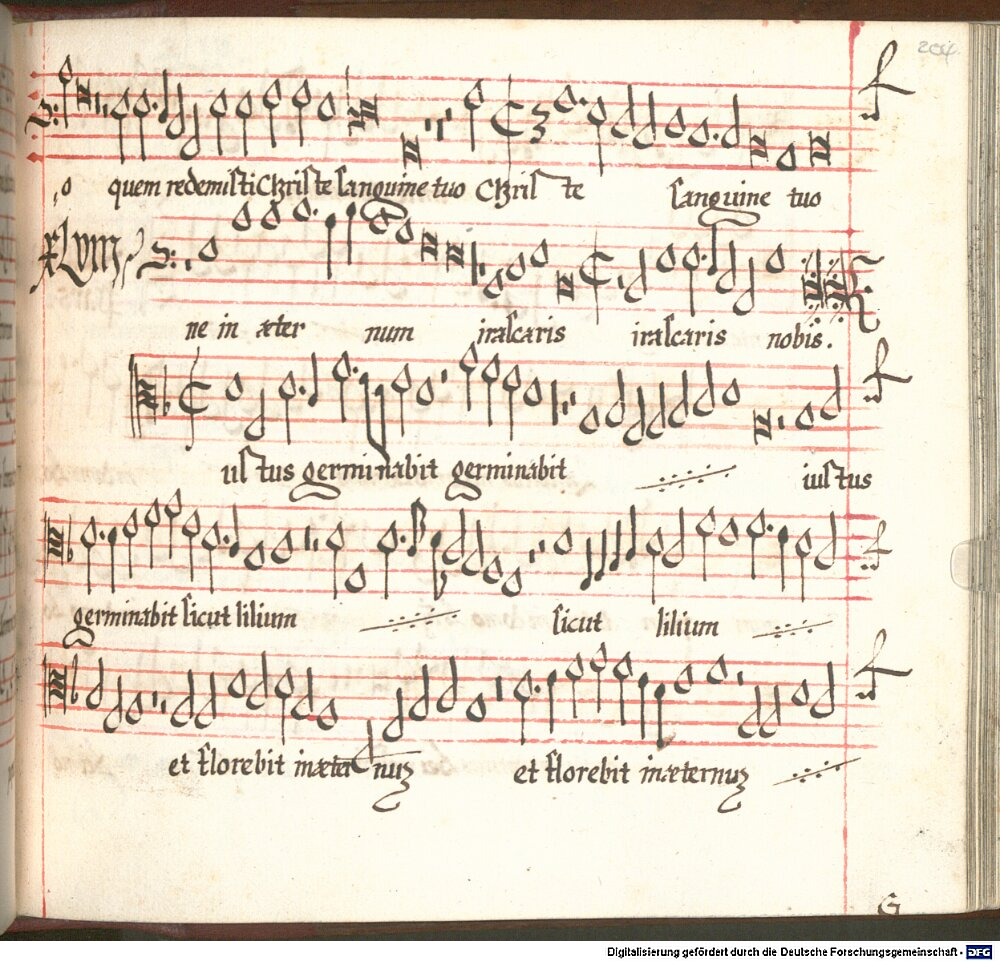 204
o quem redemisti Christe sanguine tuo Christe sanguine tuo
ne in æter num irascaris irascaris nobis.
iustus germinabit germinabit iustus
germinabit sicut lilium sicut lilium
et florebit in æter nuʒ et florebit in æternuʒ
G
Digitalisierung gefördert durch die Deutsche Forschungsgemeinschaft - DFG